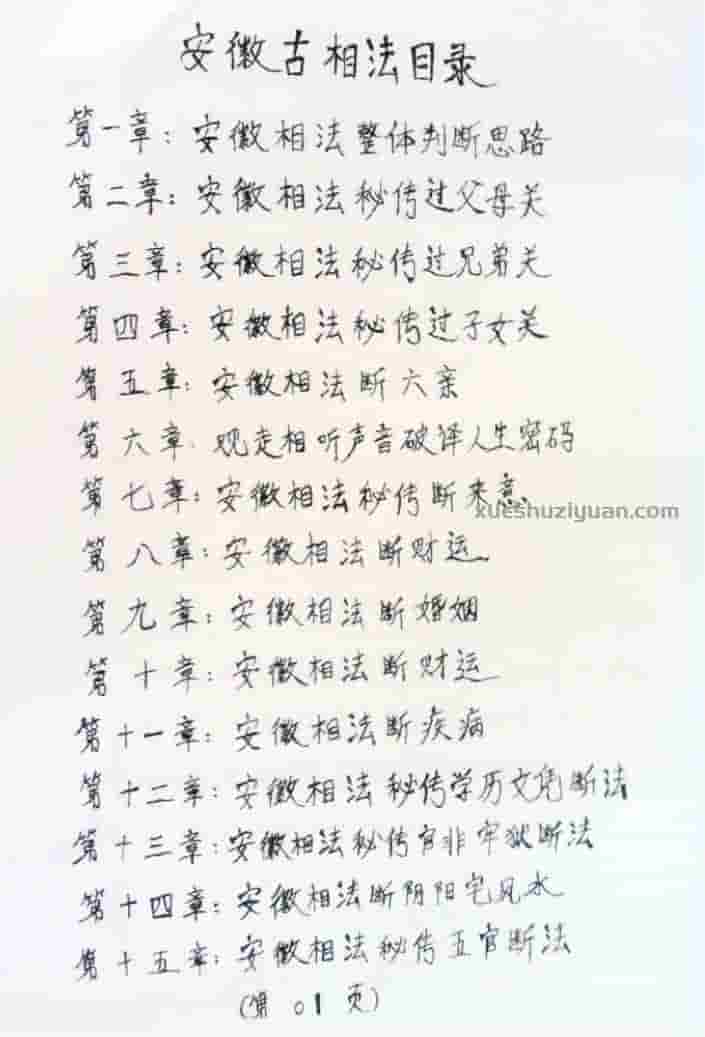 安徽古相法目录
第一章：安徽相法整体判断思路
第二章：安徽相法秘传过父母关
第三章：安徽相法秘传过兄弟关
第四章：安徽相法秘传过子女关
第五章：安徽相法断六亲
第六章、观走相听声音破译人生密码
第七章：安徽相法秘传断来意
xueshuziyuan.com
第八章：安徽相法断财运
第九章：安徽相法断婚姻
第十章：安徽相法断财运
第十一章：安徽相法断疾病
第十二章：安徽相法秘传学历文凭断法
第十三章：安徽相法秘传官非牢狱断法
第十四章：安徽相法断阴阳宅风水
第十五章：安徽相法秘传五官断法
(第01页)